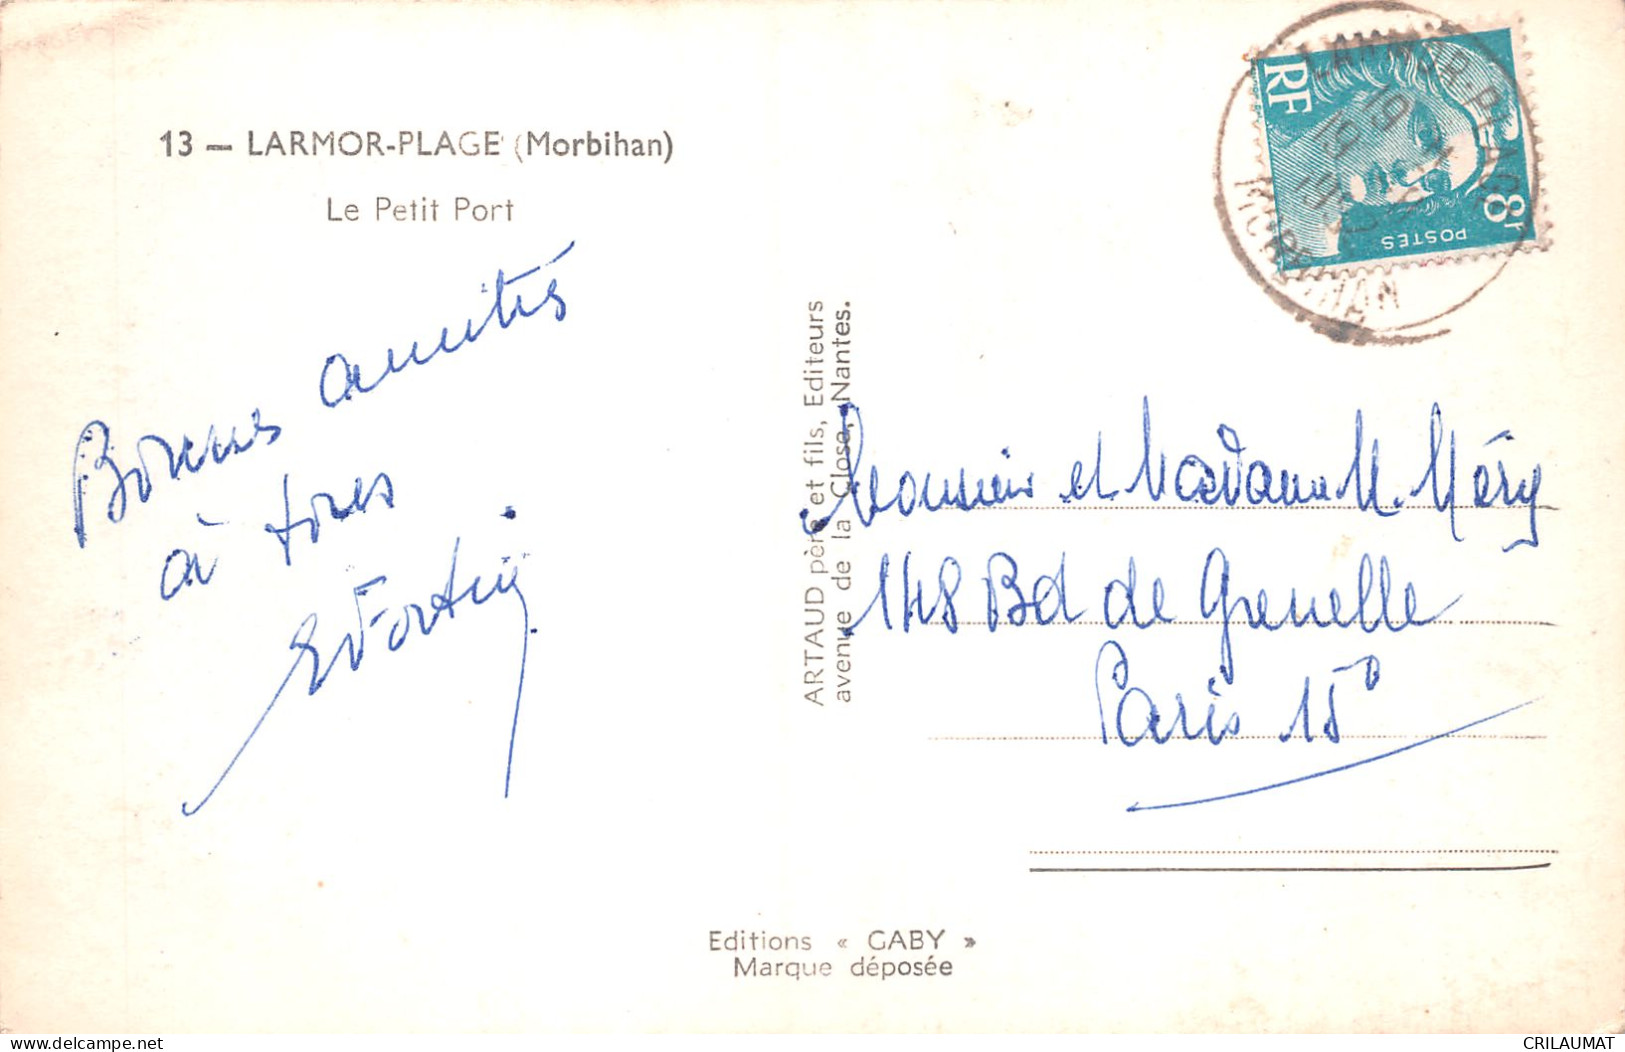 13 — LARMOR-PLAGE (Morbihan)
Le Petit Port
Bonnes amitiés
à tous
ARTAUD père et fils, Editeurs
avenue de la Close, Nantes.
RF
POSTES
8F
LARMOR-PLAGE
MORBIHAN
Monsieur et Madame M. Méry
148 Bd de Grenelle
Paris 15°
Editions « GABY »
Marque déposée
www.delcampe.net
CRILAUMAT